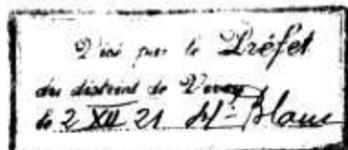 Visé par le Préfet
du district de Vevey
le 2 XII 21 Blanc